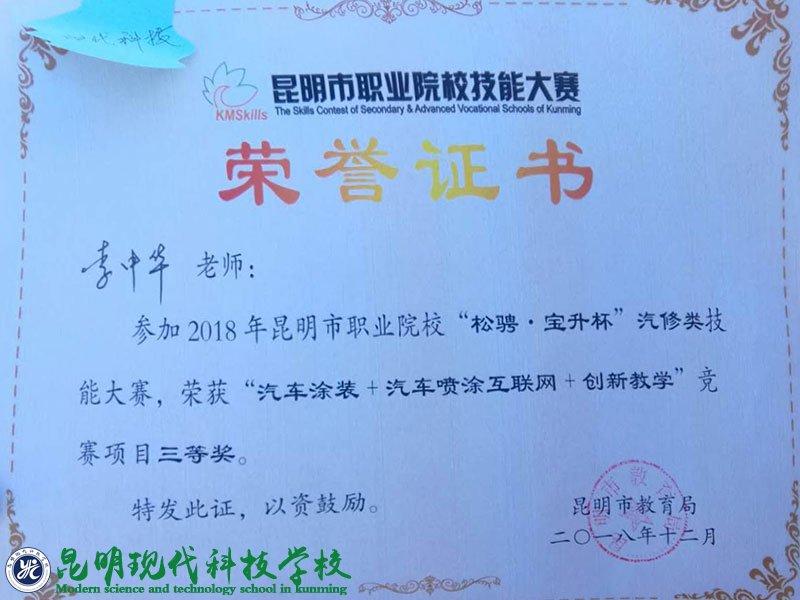 现代科技
KMSkills
昆明市职业院校技能大赛
The Skills Contest of Secondary & Advanced Vocational Schools of Kunming
荣誉证书
李中华 老师：
参加2018年昆明市职业院校“松骋·宝升杯”汽修类技
能大赛，荣获“汽车涂装+汽车喷涂互联网+创新教学”竞
赛项目三等奖。
特发此证，以资鼓励。
昆明市教育局
二〇一八年十二月
昆明现代科技学校
Modern science and technology school in kunming